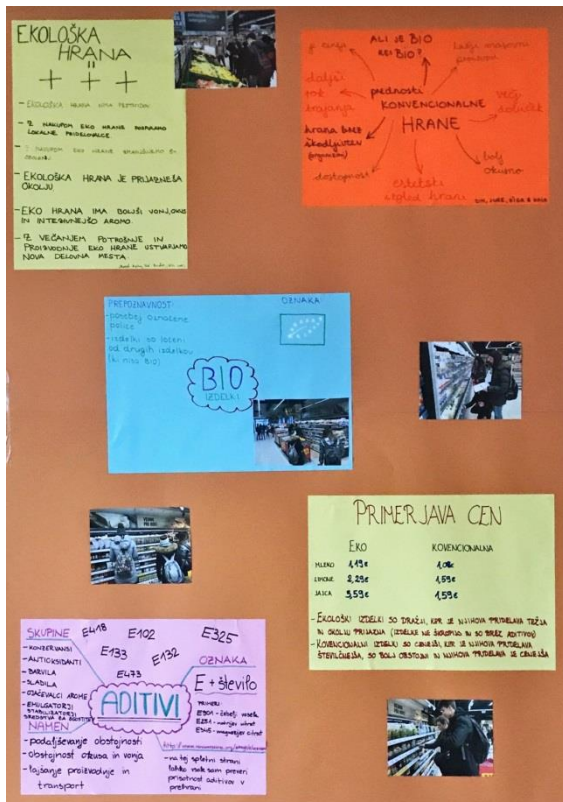 EKOLOŠKA
HRANA
- Z NAKUPOM EKO HRANE PODPIRAMO
LOKALNE PRIDELOVALCE
- EKOLOŠKA HRANA JE PRIJAZNEJŠA
OKOLJU.
- EKO HRANA IMA BOLJŠI VONJ, OKUS
IN INTENZIVNEJŠO AROMO.
- Z VEČANJEM POTROŠNJE IN
PROIZVODNJE EKO HRANE USTVARJAMO
NOVA DELOVNA MESTA.
ALI JE BIO
RES BIO?
daljši
rok
trajanja
prednosti
KONVENCIONALNE
HRANE
več
hrana brez
škodljivcev
dostopnost
bolj
okusno
estetski
izgled hrane
PREPOZNAVNOST:
- posebej označene
police
- izdelki so ločeni
od drugih izdelkov
(ki niso BIO)
OZNAKA:
BIO
IZDELKI
PRIMERJAVA CEN
EKO KOVENCIONALNA
MLEKO 1,19€
LIMONE 2,29€ 1,59€
JAJCA 3,59€ 1,59€
- EKOLOŠKI IZDELKI SO DRAŽJI, KER JE NJIHOVA PRIDELAVA TEŽJA
IN OKOLJU PRIJAZNA (IZDELKE NE ŠKROPIJO IN SO BREZ ADITIVOV)
- KOVENCIONALNI IZDELKI SO CENEJŠI, KER JE NJIHOVA PRIDELAVA
ŠTEVILČNEJŠA, SO BOLJ OBSTOJNI IN NJIHOVA PRIDELAVA JE CENEJŠA
SKUPINE
- KONZERVANSI
- ANTIOKSIDANTI
- BARVILA
- SLADILA
- OJAČEVALCI AROME
- EMULGATORJI
STABILIZATORJI
E418
E102
E325
E133
E132
E473
ADITIVI
OZNAKA
E + število
PRIMERI:
NAMEN
- podaljševanje obstojnosti
- obstojnost okusa in vonja
- lajšanje proizvodnje in
transport
- na tej spletni strani
lahko vsak sam preveri
prisotnost aditivov v
prehrani